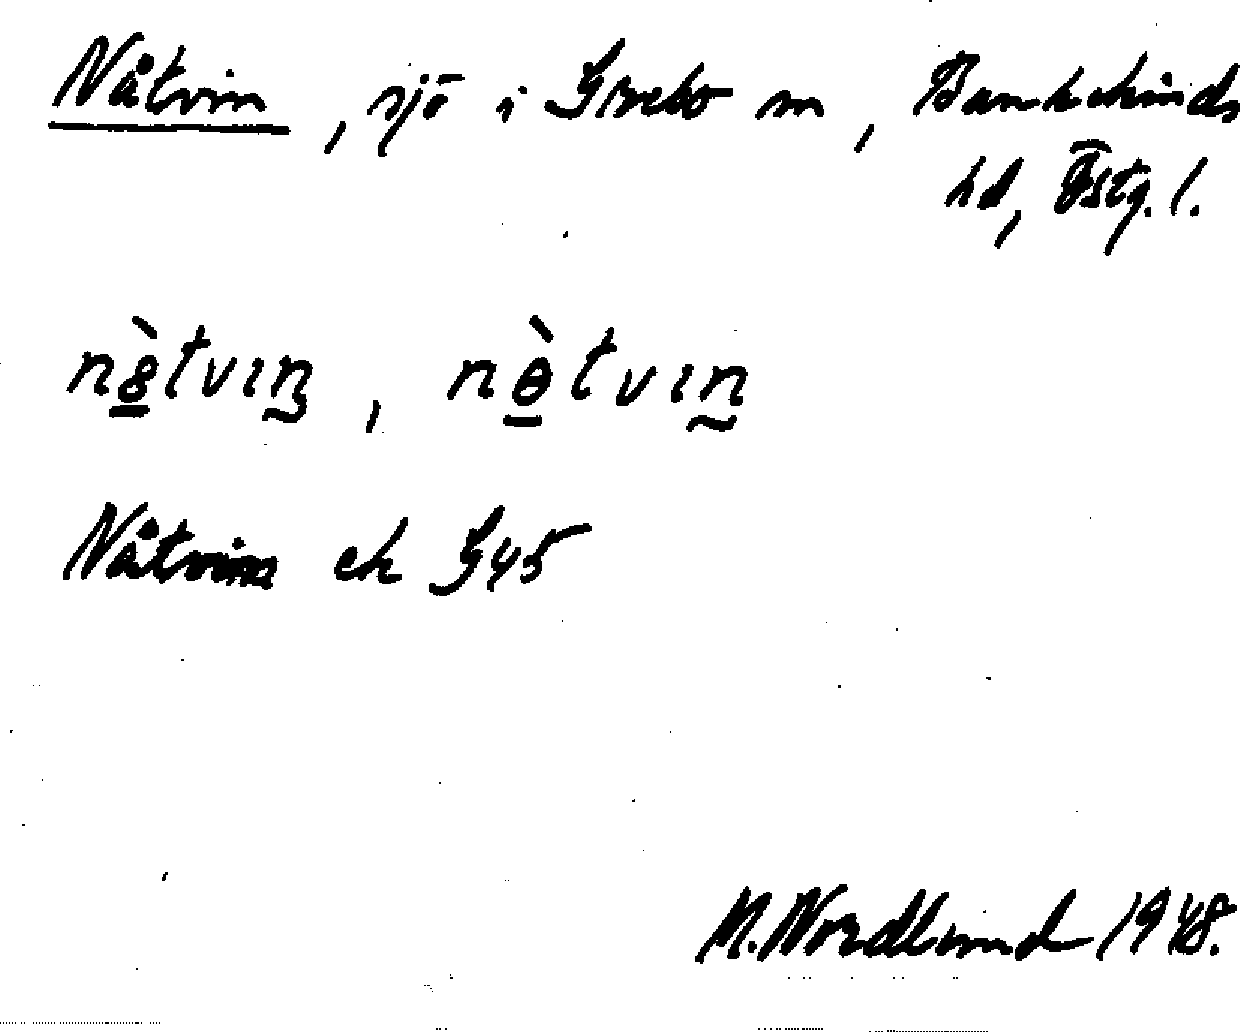 Nåtvin, sjö i Grebo sn, Bankekinds
hd, Östg. l.
nȣ̀tvın, nɵ̀tvın
Nåtvin ek G45
N. Nordlund 1948.